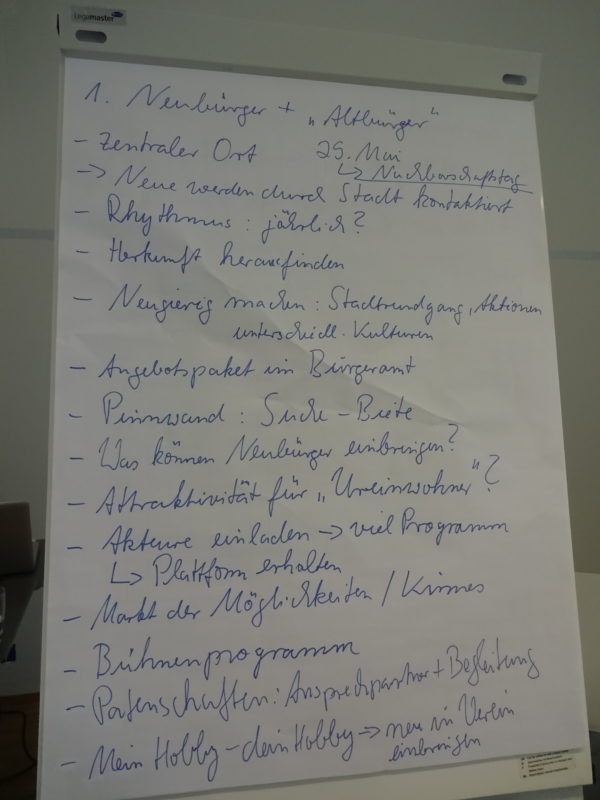 Legamaster
1. Neubürger + „Altbürger"
- Zentraler Ort 29. Mai
↳ Nachbarschaftstag
-> Neue werden durch Stadt kontaktiert
- Rhythmus: jährlich?
- Herkunft herausfinden
- Neugierig machen: Stadtrundgang, Aktionen
unterschiedl. Kulturen
- Angebotspaket im Bürgeramt
- Pinnwand: Suche - Biete
- Was können Neubürger einbringen?
- Attraktivität für „Ureinwohner"?
- Akteure einladen -> viel Programm
↳ Plattform erhalten
- Markt der Möglichkeiten / Kirmes
- Bühnenprogramm
- Patenschaften: Ansprechpartner + Begleitung
- Mein Hobby - dein Hobby -> neu in Verein
einbringen